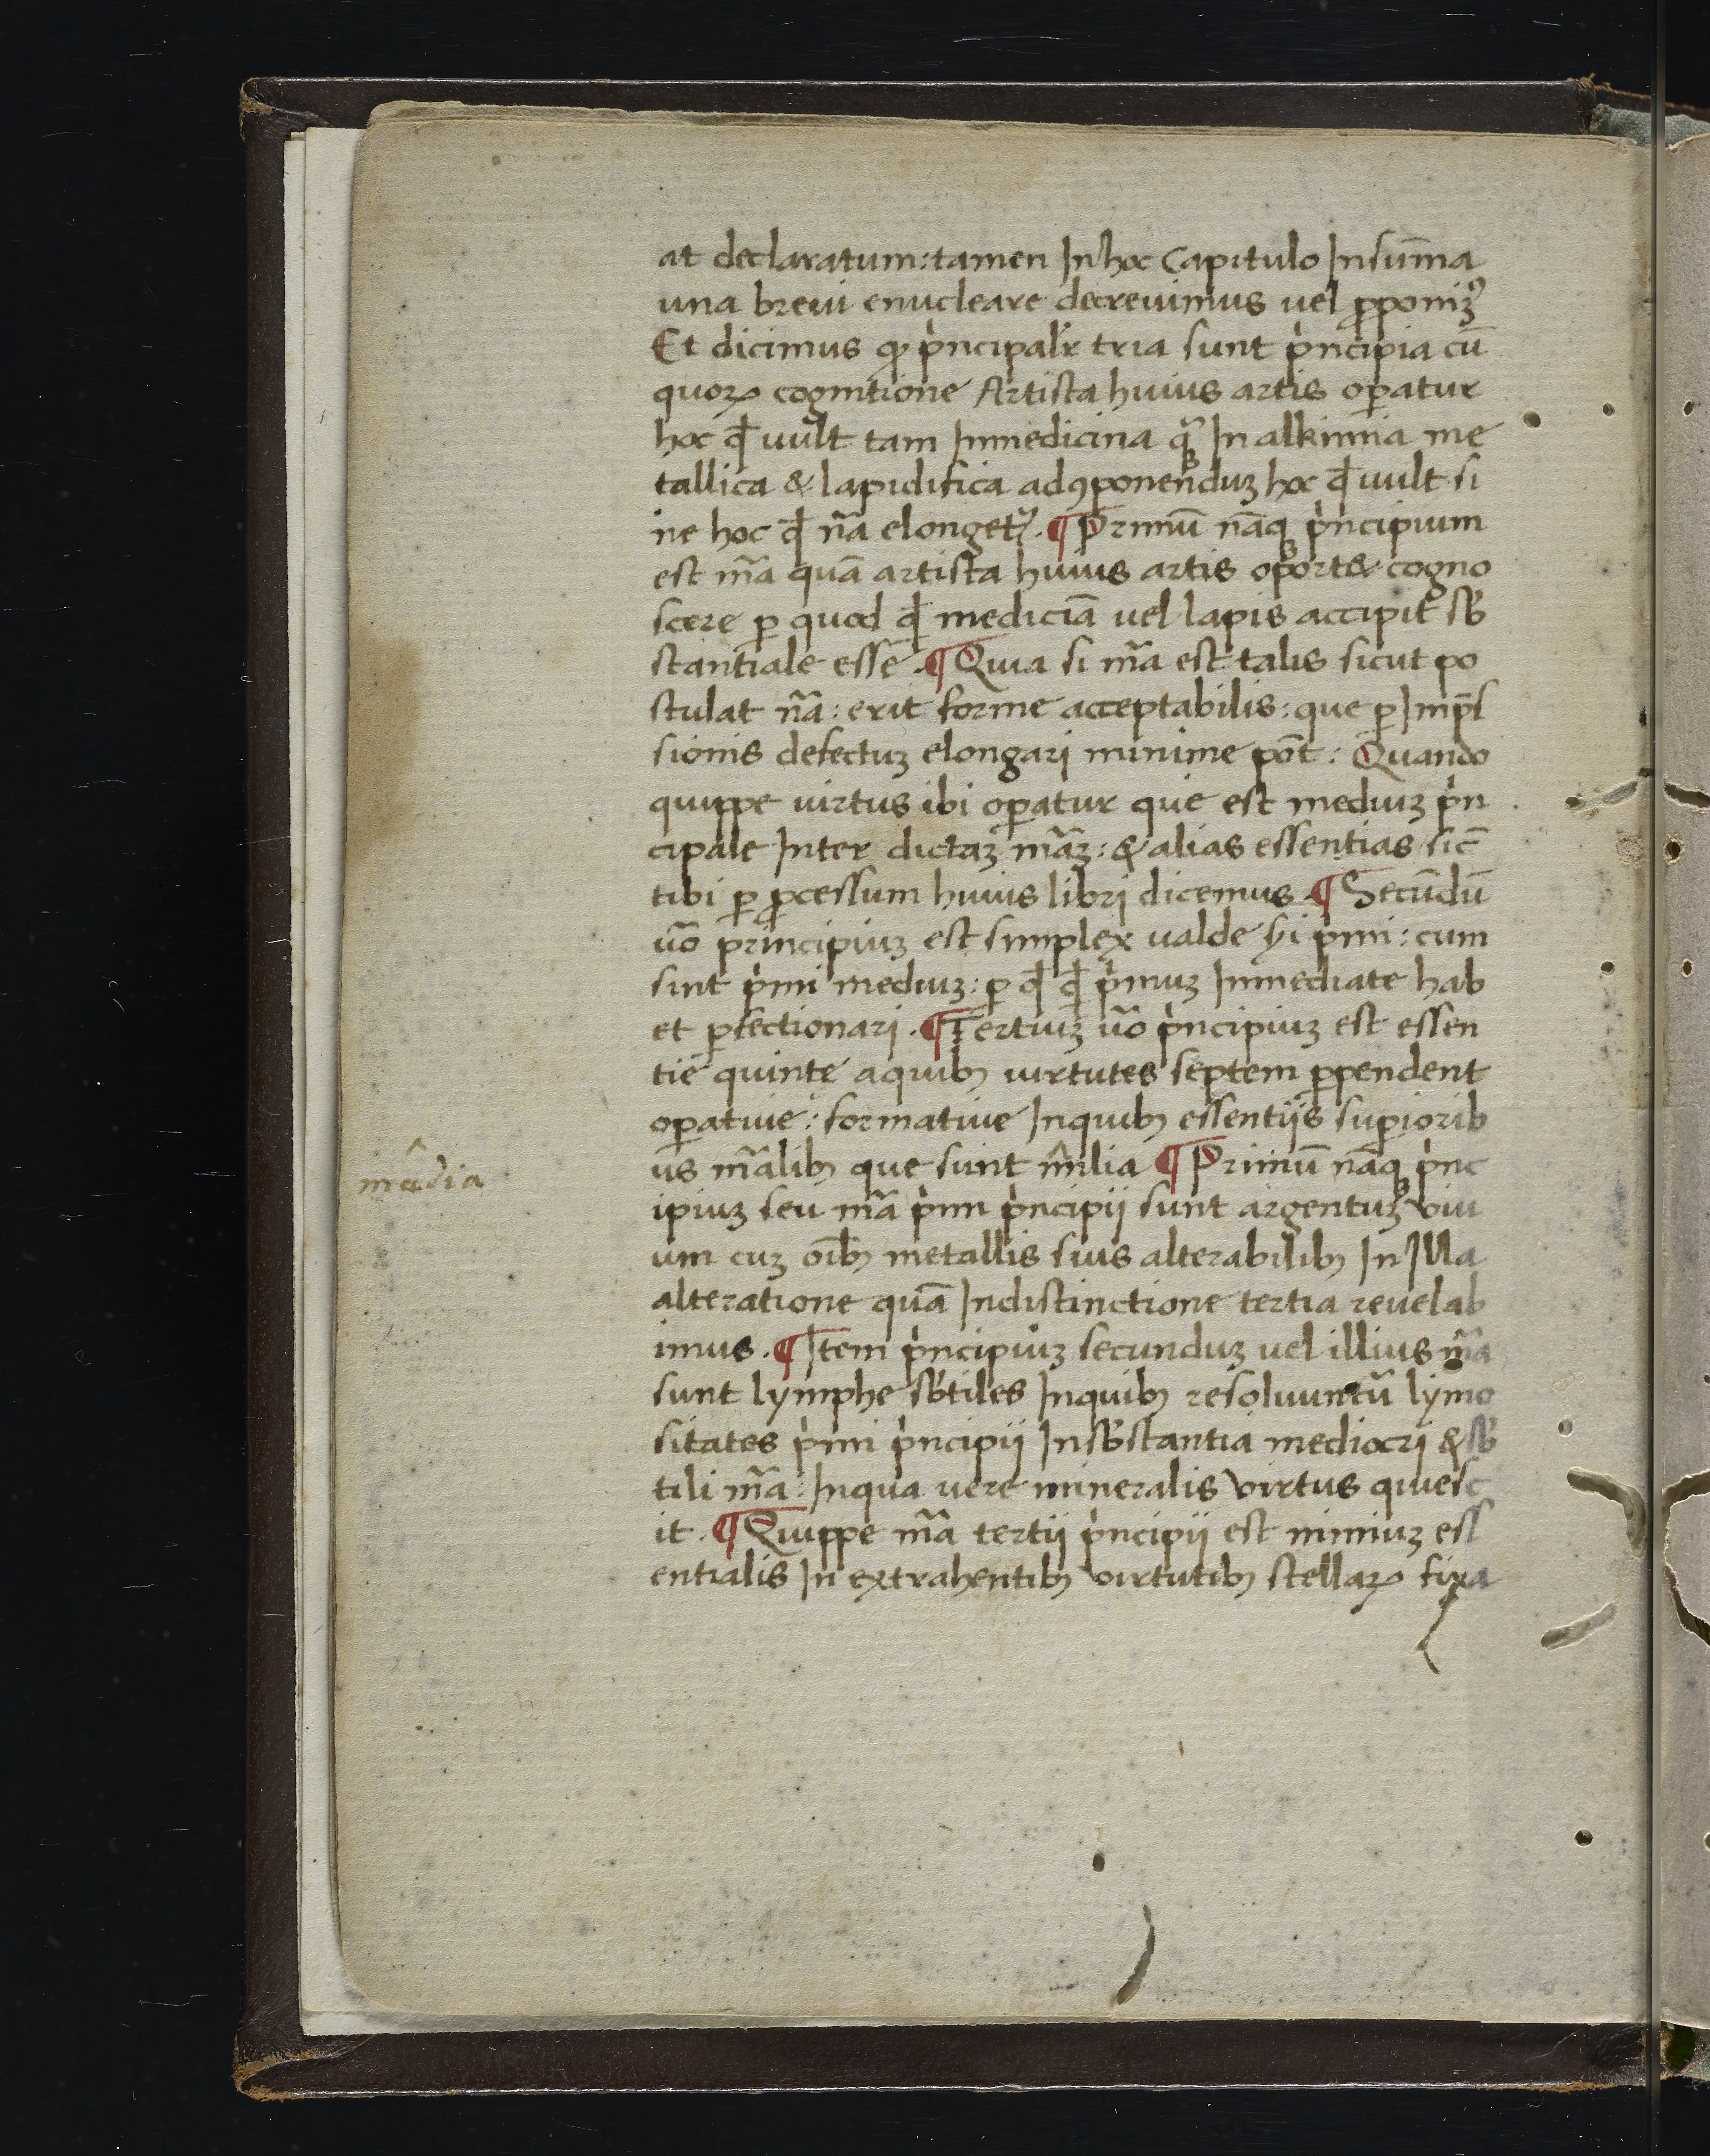 at declaratum: tamen In hoc Capitulo In sum̄a
una breui enucleare decreuimus uel ꝓponimꝰ
Et dicimus ꝙ pͥncipalr̛ tria sunt pͥncipia cū
quoꝝ cognitione Artista huius artis oꝑatur
hoc qđ uult tam Inmedicina qͣꝫ In alkimia me
tallica & lapidifica adꝯponenduꝫ hoc qđ uult si
ne hoc qđ nãa elonget᷑. ¶ Primū nāqꝫ pͥncipium
est mãa quā artista huius artis oport& cogno
scere ꝑ quod qđ mediciā uel lapis accipit sb̛
stantiale esse. ¶ Quia si mãa est talis sicut po
stulat nãa: erit forme acceptabilis: que ꝑ Imp̄s
sionis defectuꝫ elongari minime pōt: Quando
quippe uirtus ibi oꝑatur que est mediuꝫ pͥn
cipale Inter dictaꝫ mãaꝫ: & alias essentias sic̄
tibi ꝑ ꝓcessum huius libri dicemus. ¶ Secūdū
uo᷑ principiuꝫ est simplex ualde hi pͥmi: cum
sint pͥmi mediuꝫ: ꝑ qđ qđ pͥmuꝫ Immediate hab
et ꝑfectionari. ¶ Tertiuꝫ uo᷑ pͥncipiuꝫ est essen
tie quinte aquibꝫ uirtutes septem ꝓpendent
oꝑatiue: formatiue Inquibꝫ essentijs suꝑiorib
us mãalibꝫ que sunt m̂ilia ¶ Primū nāqꝫ pͥnc
ipiuꝫ seu mãa pͥmi pͥncipij sunt argentuꝫ viu
um cuꝫ oībꝫ metallis siuis alterabilibꝫ In Illa
alteratione quā Indistinctione tertia reuelab
imus. ¶ Item pͥncipiuꝫ secunduꝫ uel illius mãa
sunt lymphe sb̛tiles Inquibꝫ resoluuntū lymo
sitates pͥmi pͥncipij Insb̛stantia mediocri & sb̛
tili mãa: Inqua uere mineralis virtus quiesc
it. ¶ Quippe mãa tertij pͥncipij est nimiuꝫ ess
entialis In extrahentibꝫ virtutibꝫ stellaꝝ fixa
mâdia